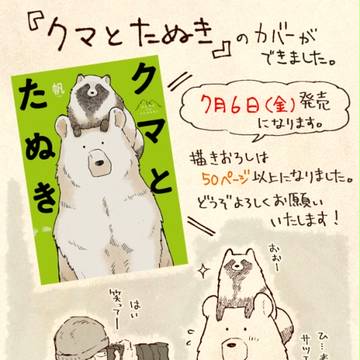 『クマとたぬき』のカバーが
できました。
クマと
たぬき
帆
7月6日(金)発売
になります。
描きおろしは
50ページ以上になりました。
どうぞよろしくお願い
いたします!
おおー
はい
笑ってー